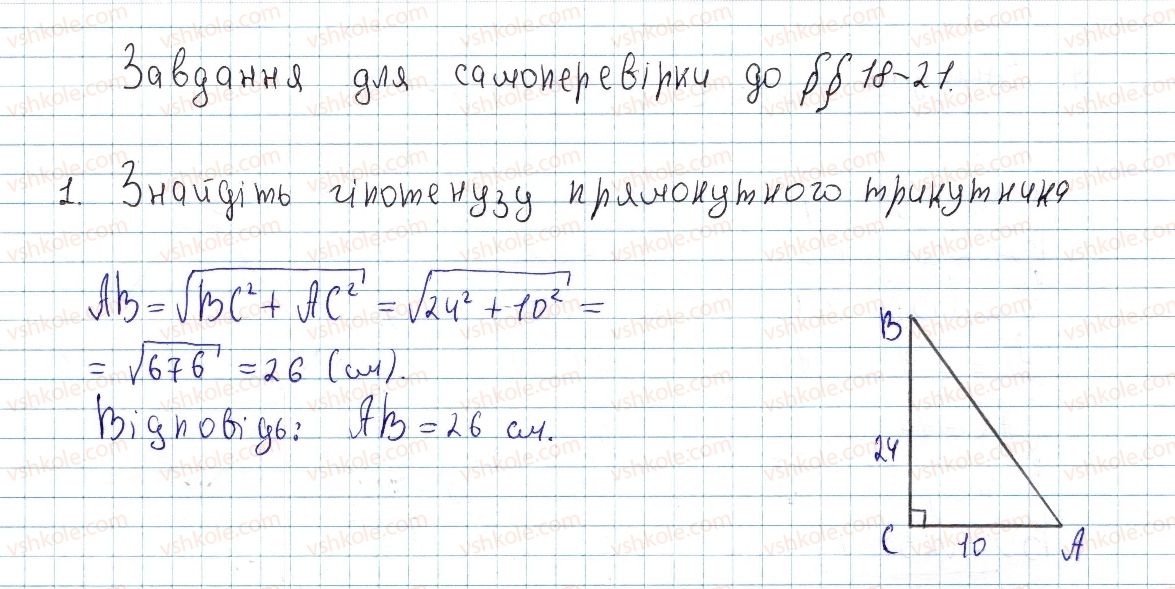 Завдання для самоперевірки до §§ 18-21.
1. Знайдіть гіпотенузу прямокутного трикутника
AB = √BC² + AC² = √24² + 10² =
= √676 = 26 (см).
Відповідь: AB = 26 см.
B
24
C 10 A
vshkole.com